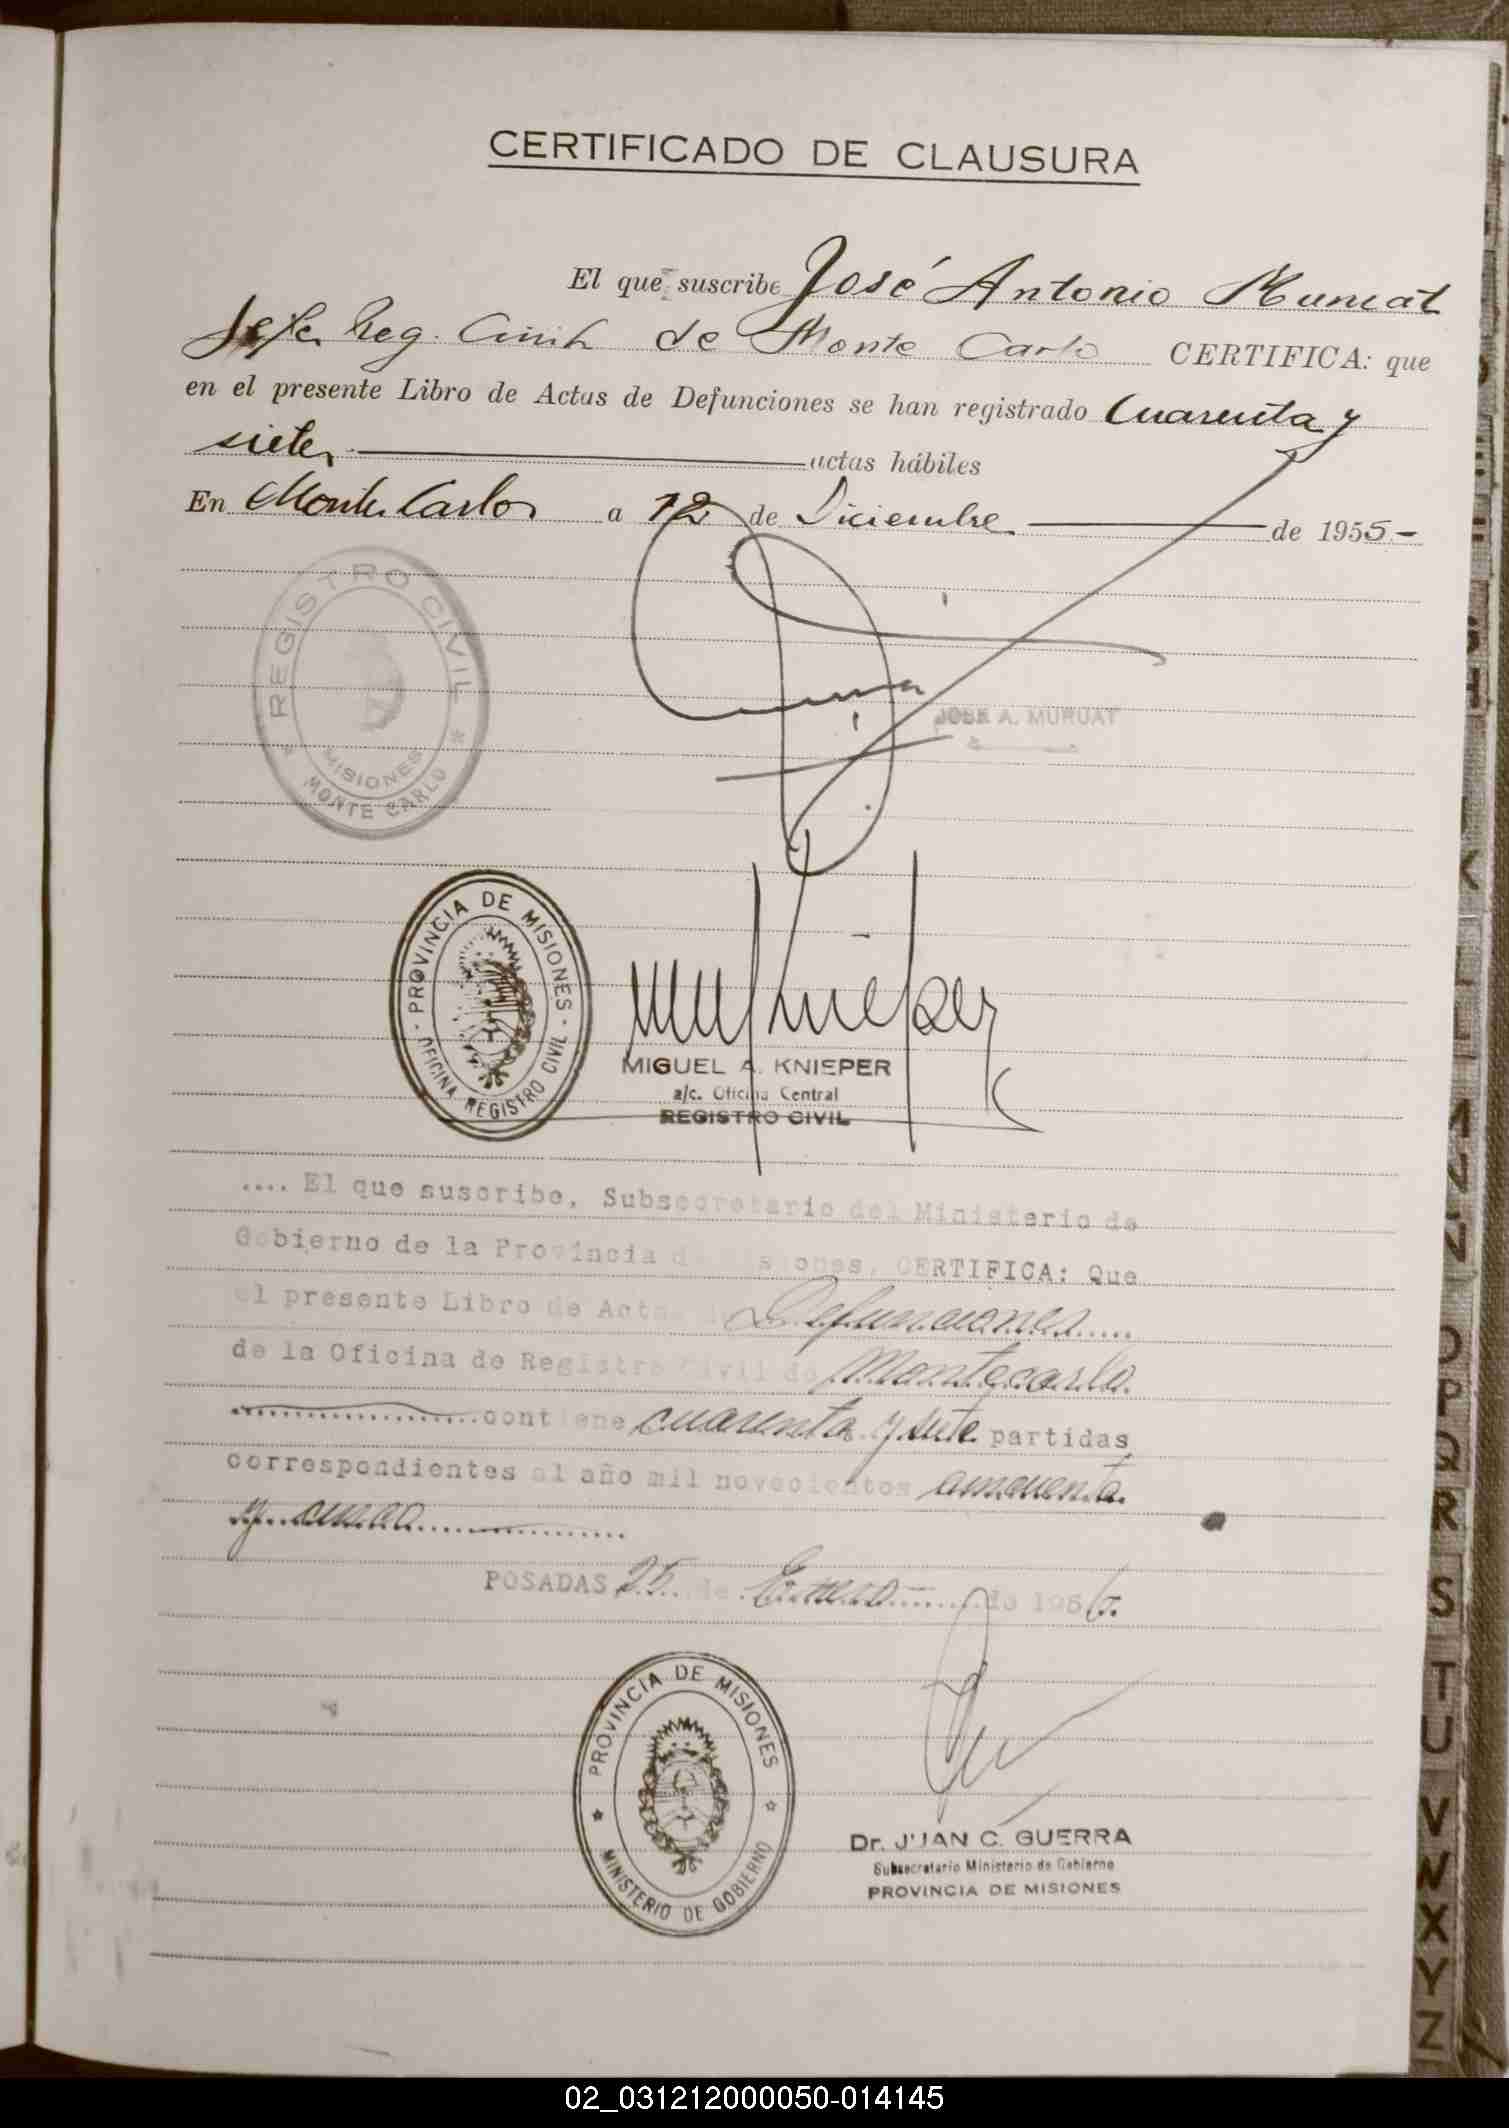 CERTIFICADO DE CLAUSURA
El que suscribe José Antonio Muruat
Jefe Reg. Civil de Monte Carlo CERTIFICA: que
en el presente Libro de Actas de Defunciones se han registrado Cuarenta y
siete actas hábiles
En Monte Carlo a 12 de Diciembre de 1955-
REGISTRO CIVIL
MISIONES
MONTE CARLO
JOSE A. MURUAT
PROVINCIA DE MISIONES
OFICINA REGISTRO CIVIL
MIGUEL A. KNIEPER
a/c. Oficina Central
REGISTRO CIVIL
.... El que suscribe, Subsecretario del Ministerio de
Gobierno de la Provincia de Misiones, CERTIFICA: Que
el presente Libro de Actas de Defunciones.....
de la Oficina de Registro Civil de Montecarlo.
contiene cuarenta y siete partidas
correspondientes al año mil novecientos cincuenta
y cinco
POSADAS 25 de Enero de 1956.
PROVINCIA DE MISIONES
MINISTERIO DE GOBIERNO
Dr. JUAN C. GUERRA
Subsecretario Ministerio de Gobierno
PROVINCIA DE MISIONES
K
L
M
N
O
P
Q
R
S
T
U
V
W
X
Y
Z
02_031212000050-014145